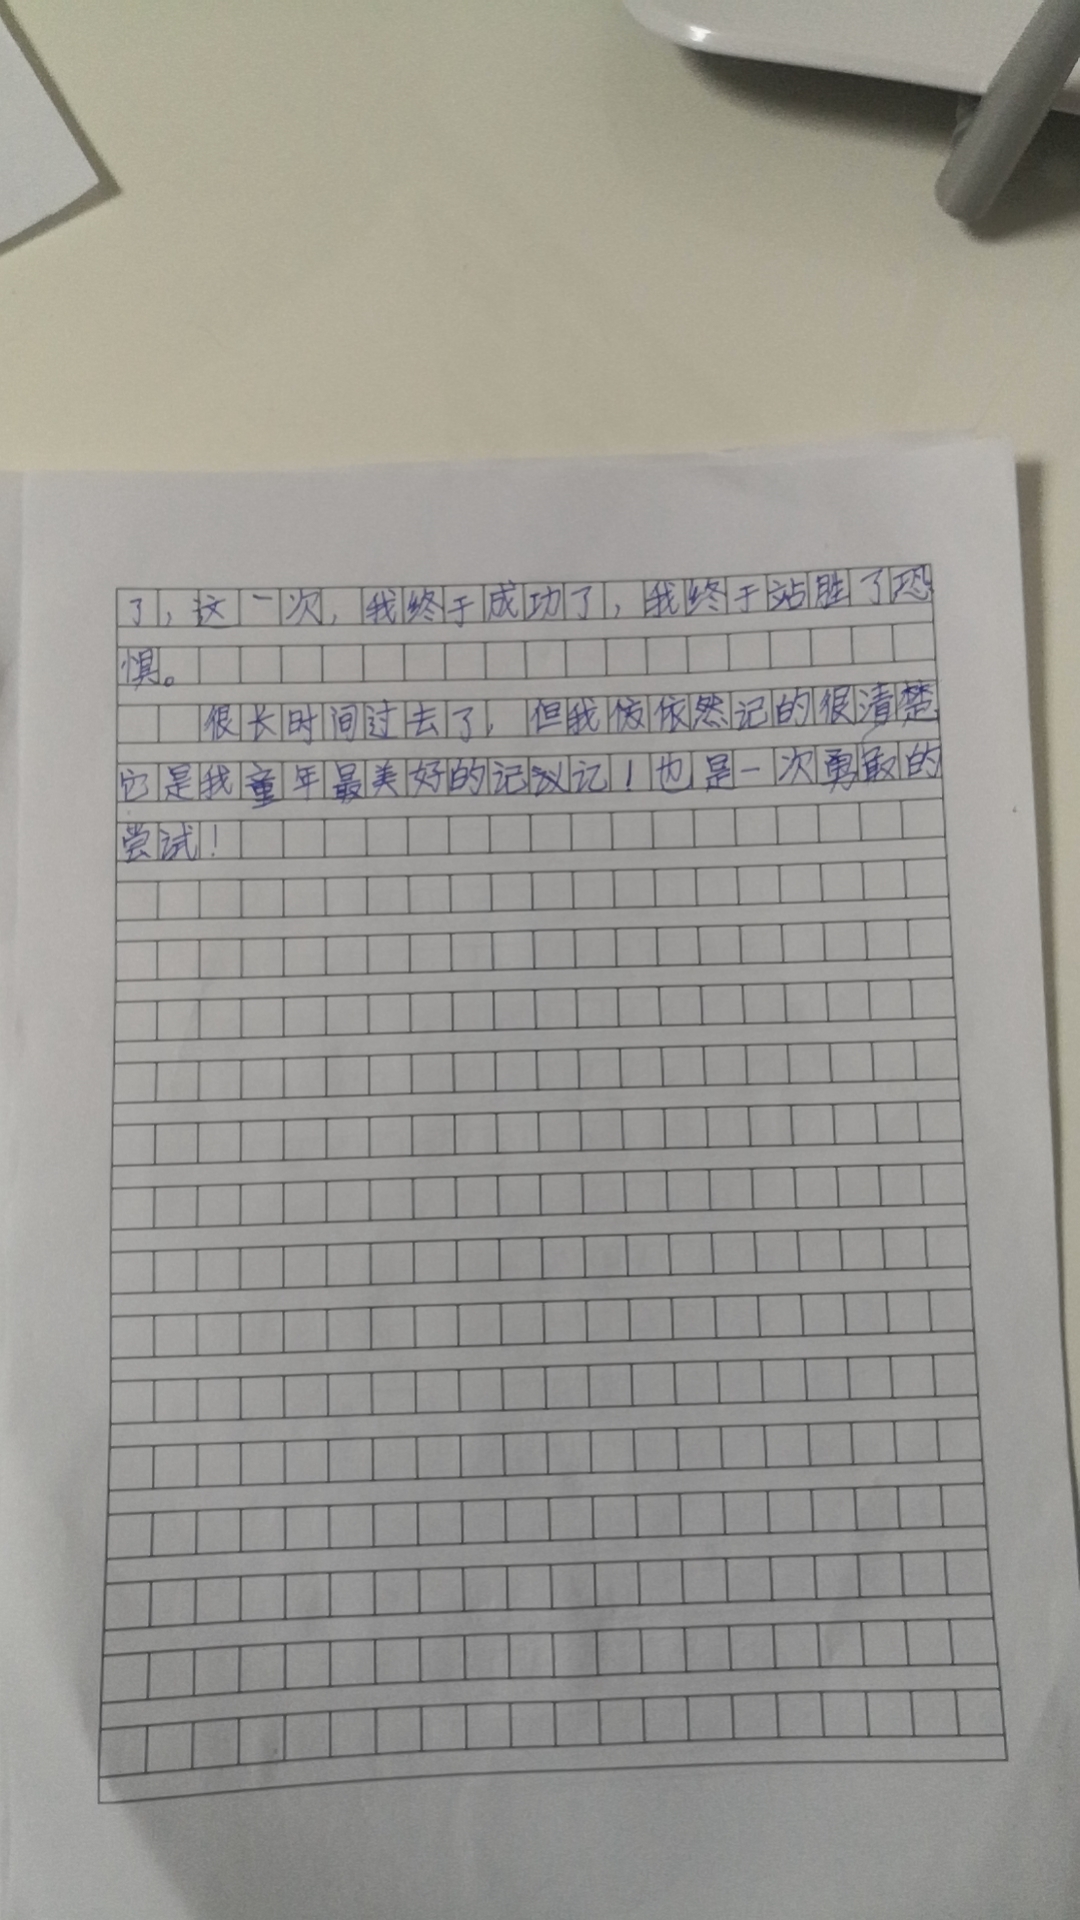 了，这一次，我终于成功了，我终于站胜了恐
惧。
很长时间过去了，但我依然记的很清楚
它是我童年最美好的记记！也是一次勇敢的
尝试！